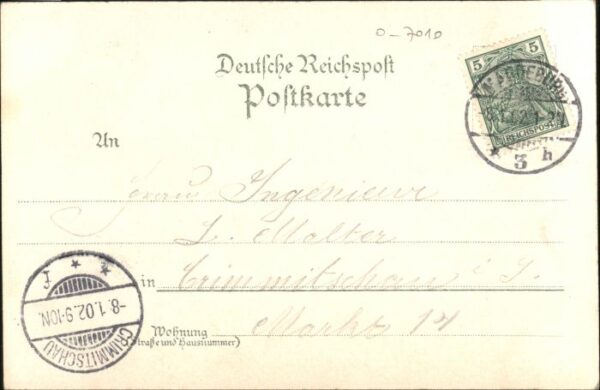 0-7010
Deutsche Reichspost
Postkarte
5 5
REICHSPOST
MAGDEBURG
* 3 h
An
Frau Ingenieur
L. Molter
in Crimmitschau i S.
Wohnung Markt 14
(Straße und Hausnummer)
* * f
-8.1.02.9-10N.
CRIMMITSCHAU